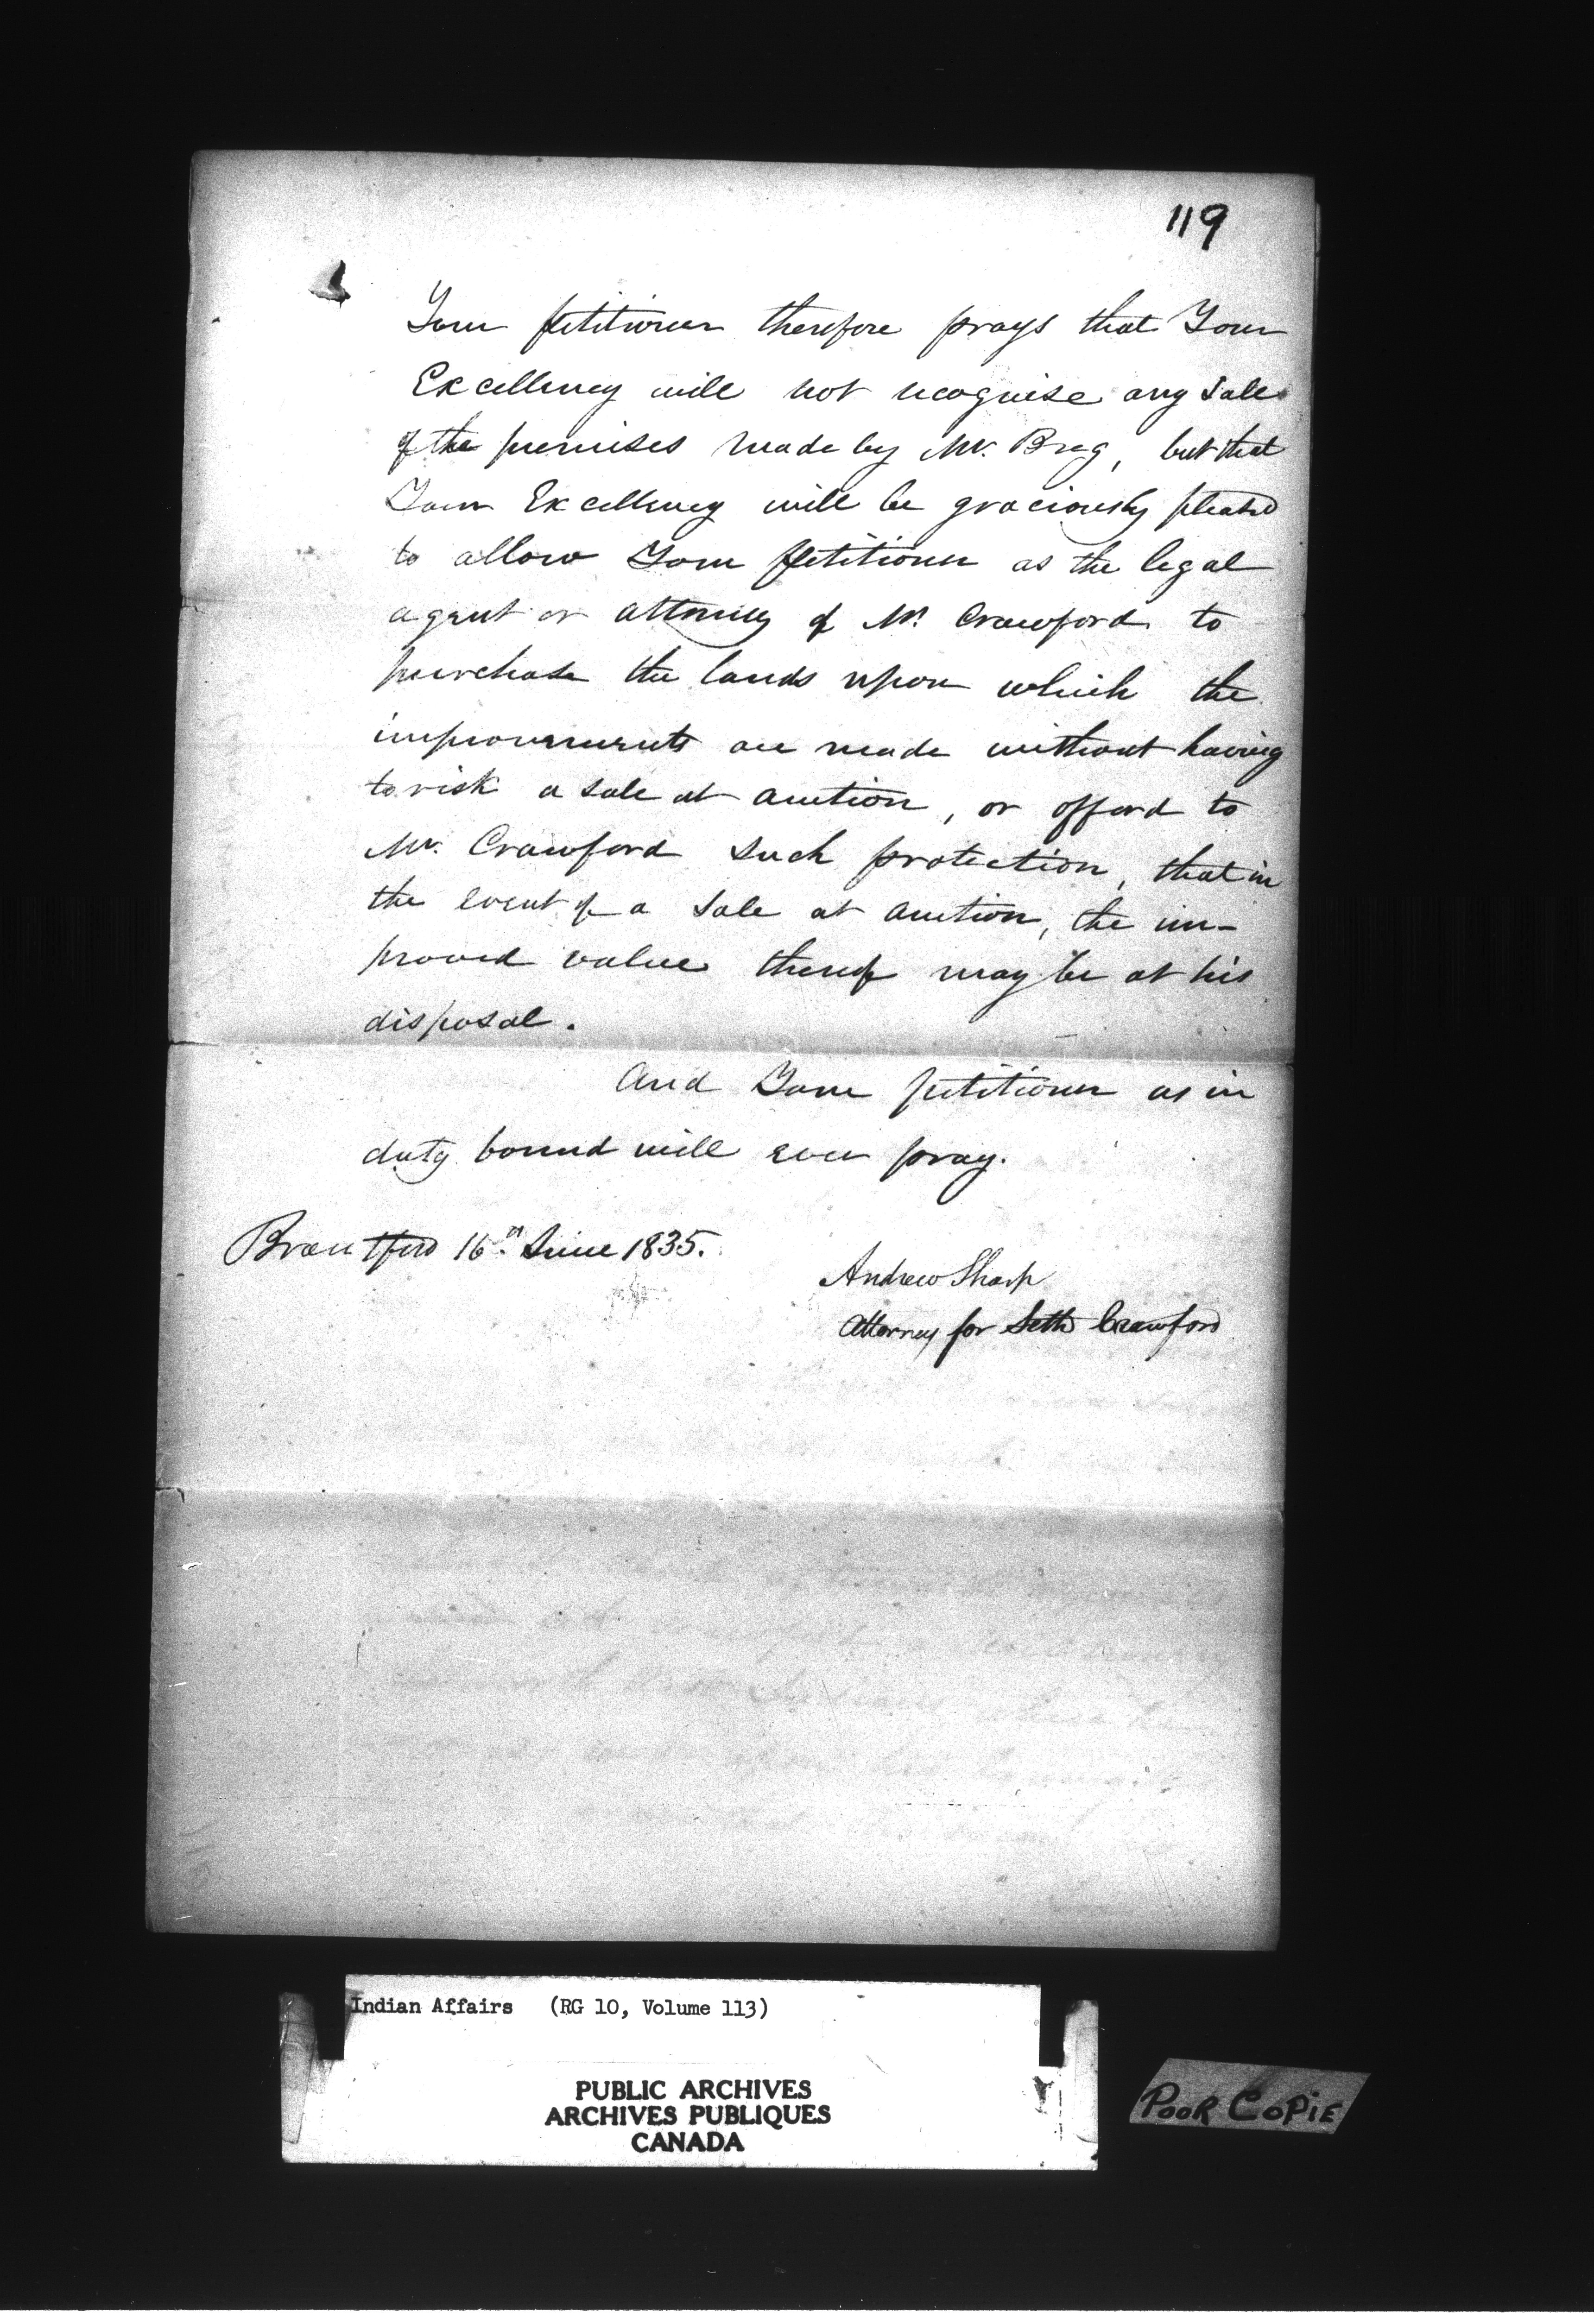 119
Your petitioner therefore prays that Your
Excellency will not recognise any sale
of the premises made by Mr. Brag, but that
Your Excellency will be graciously pleased
to allow Your petitioner as the legal
agent or attorney of Mr. Crawford to
purchase the lands upon which the
improvements are made without having
to risk a sale at auction, or afford to
Mr. Crawford such protection, that in
the event of a sale at auction, the im-
proved value thereof may be at his
disposal.
And Your petitioner as in
duty bound will ever pray.
Brantford 16th June 1835.
Andrew Sharp
Attorney for Seth Crawford
Indian Affairs (RG 10, Volume 113)
PUBLIC ARCHIVES
ARCHIVES PUBLIQUES
CANADA
POOR COPIE